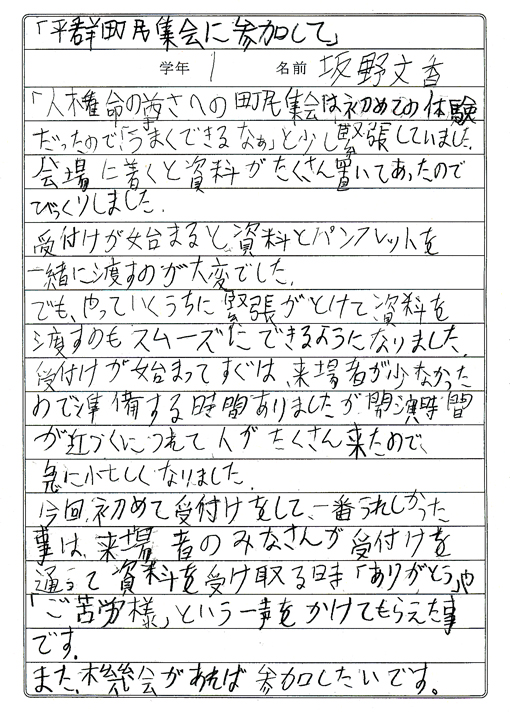 「平群町民集会に参加して」
学年 1 名前 坂野文香
「人権命の尊さへの町民集会は初めての体験
だったので「うまくできるなぁ」と少し緊張していました。
会場に着くと資料がたくさん置いてあったので
びっくりしました。
受付けが始まると資料とパンフレットを
一緒に渡すのが大変でした。
でも、やっていくうちに緊張がとけて資料を
渡すのもスムーズにできるようになりました。
受付けが始まってすぐは、来場者が少なかった
ので準備する時間ありましたが開演時間
が近づくにつれて人がたくさん来たので、
急に忙しくなりました。
今回、初めて受付けをして、一番うれしかった
事は、来場者のみなさんが受付けを
通って資料を受け取る時「ありがとう」や
「ご苦労様」という一声をかけてもらえた事
です。
また、機会があれば参加したいです。